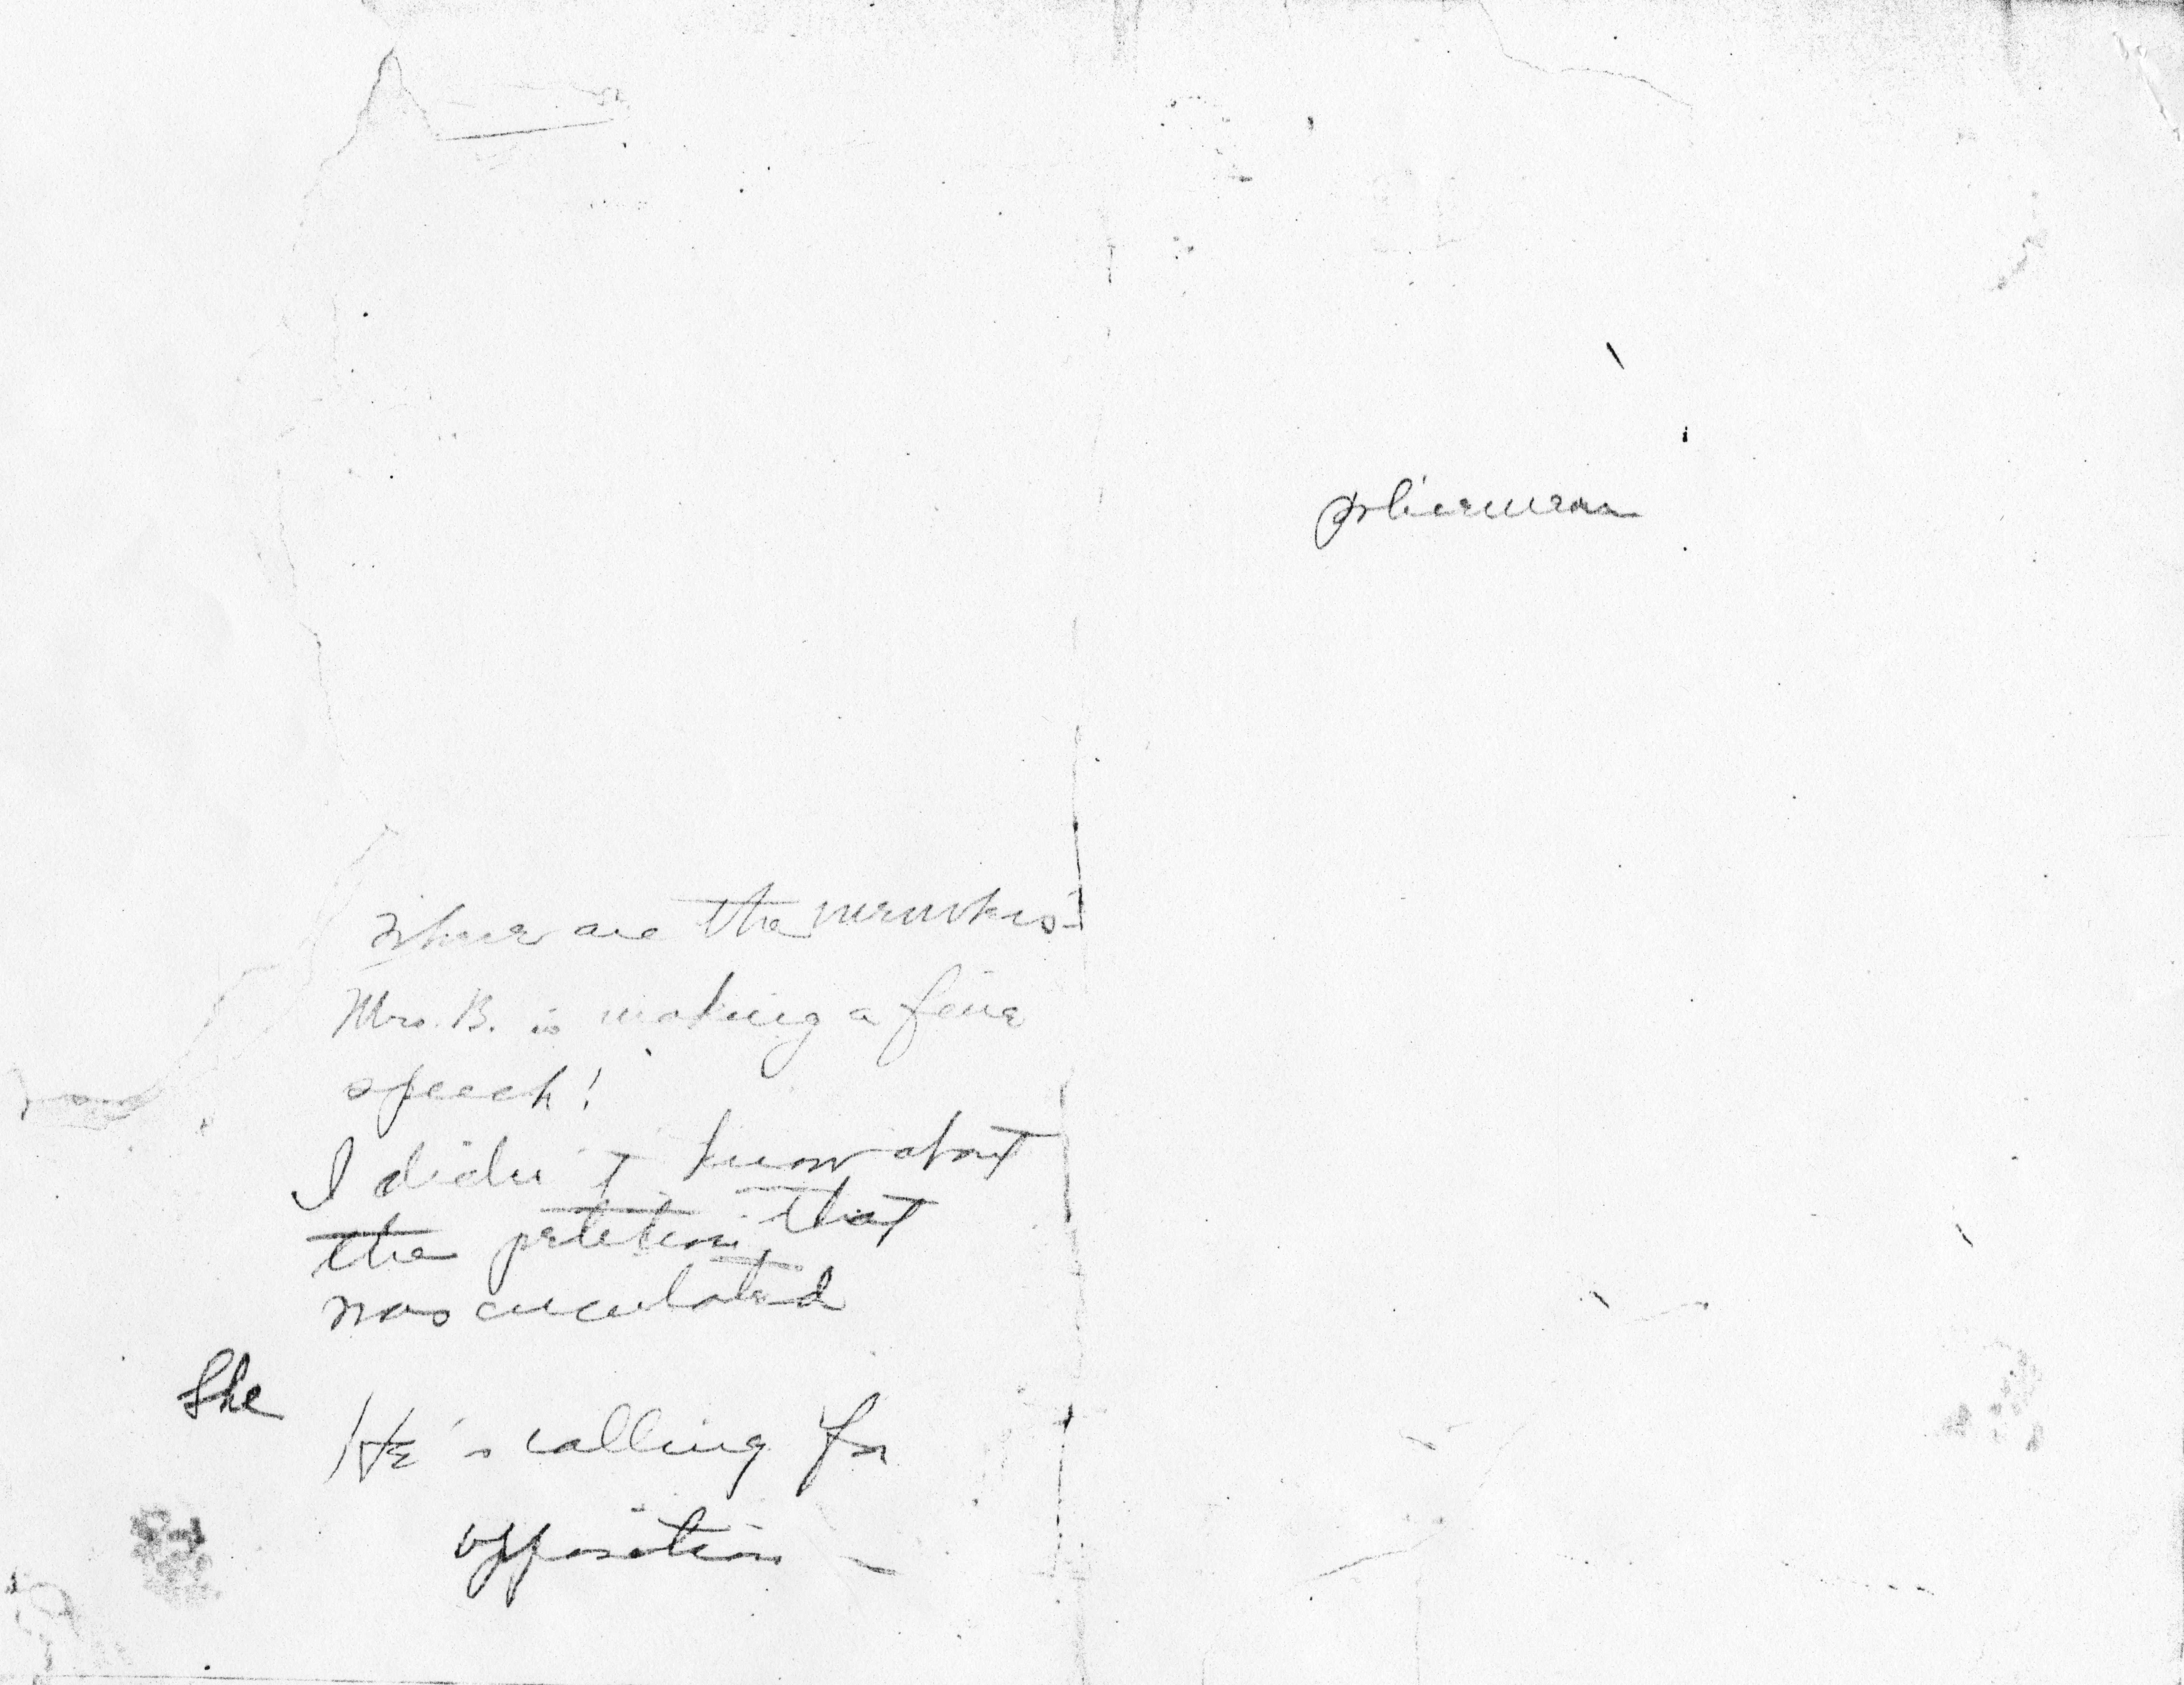 where are the members -
Mrs. B. is making a fine
speech!
I didn't know about
the petition, that
was circulated
She
He's calling for
opposition -
policeman